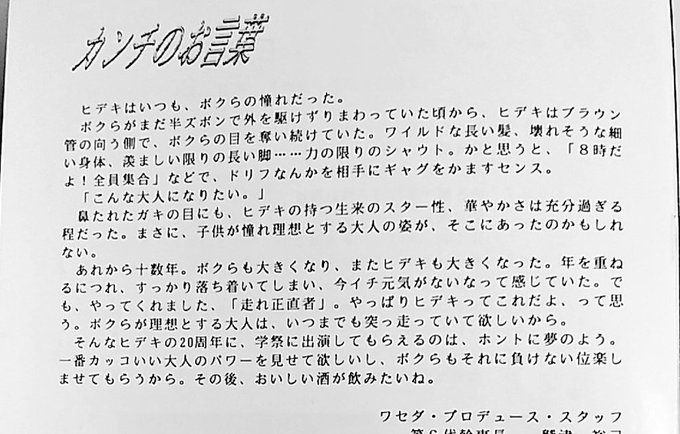 カンチのお言葉
ヒデキはいつも、ボクらの憧れだった。
ボクらがまだ半ズボンで外を駆けずりまわっていた頃から、ヒデキはブラウン
管の向う側で、ボクらの目を奪い続けていた。ワイルドな長い髪、壊れそうな細
い身体、羨ましい限りの長い脚……力の限りのシャウト。かと思うと、「8時だ
よ!全員集合」などで、ドリフなんかを相手にギャグをかますセンス。
「こんな大人になりたい。」
鼻たれたガキの目にも、ヒデキの持つ生来のスター性、華やかさは充分過ぎる
程だった。まさに、子供が憧れ理想とする大人の姿が、そこにあったのかもしれ
ない。
あれから十数年。ボクらも大きくなり、またヒデキも大きくなった。年を重ね
るにつれ、すっかり落ち着いてしまい、今イチ元気がないなって感じていた。で
も、やってくれました、「走れ正直者」。やっぱりヒデキってこれだよ、って思
う。ボクらが理想とする大人は、いつまでも突っ走っていて欲しいから。
そんなヒデキの20周年に、学祭に出演してもらえるのは、ホントに夢のよう。
一番カッコいい大人のパワーを見せて欲しいし、ボクらもそれに負けない位楽し
ませてもらうから。その後、おいしい酒が飲みたいね。
ワセダ・プロデュース・スタッフ